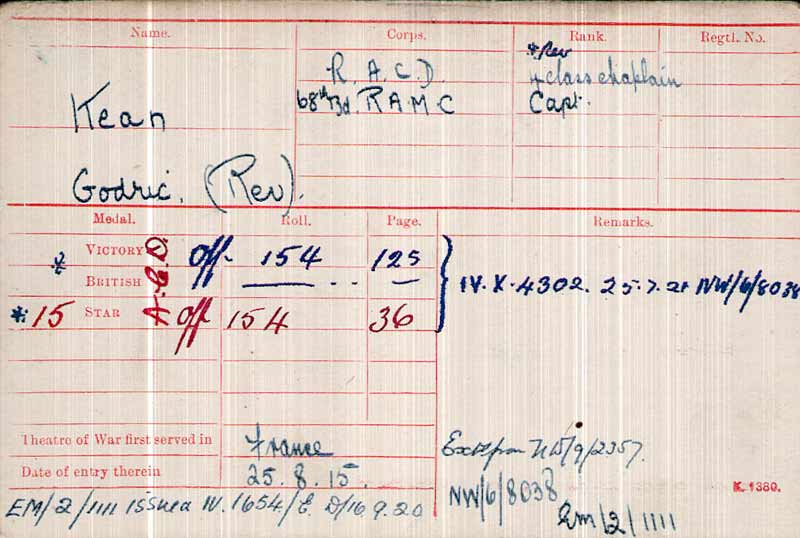 Name. Corps. Rank. Regtl. No.
Kean
Godric. (Rev).
R. A. C. D.
68th Bd. R A M C
* Rev
4 class chaplain
Capt.
Medal. Roll. Page. Remarks.
VICTORY A.C.D. Off. 154 125
BRITISH
* 15 STAR Off 154 36
IV. X. 4302. 25.7.21 NW/6/8038
Theatre of War first served in France
Date of entry therein 25. 8. 15.
EM/2/1111 issued IV. 1654/E. D/16.9.20
NW/9/2357.
NW/6/8038
Em/2/1111
K. 1380.